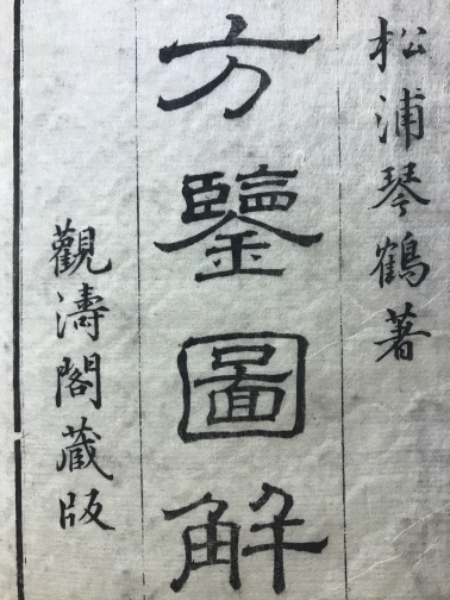 松浦琴鶴著
方鑒圖解
觀濤閣蔵版